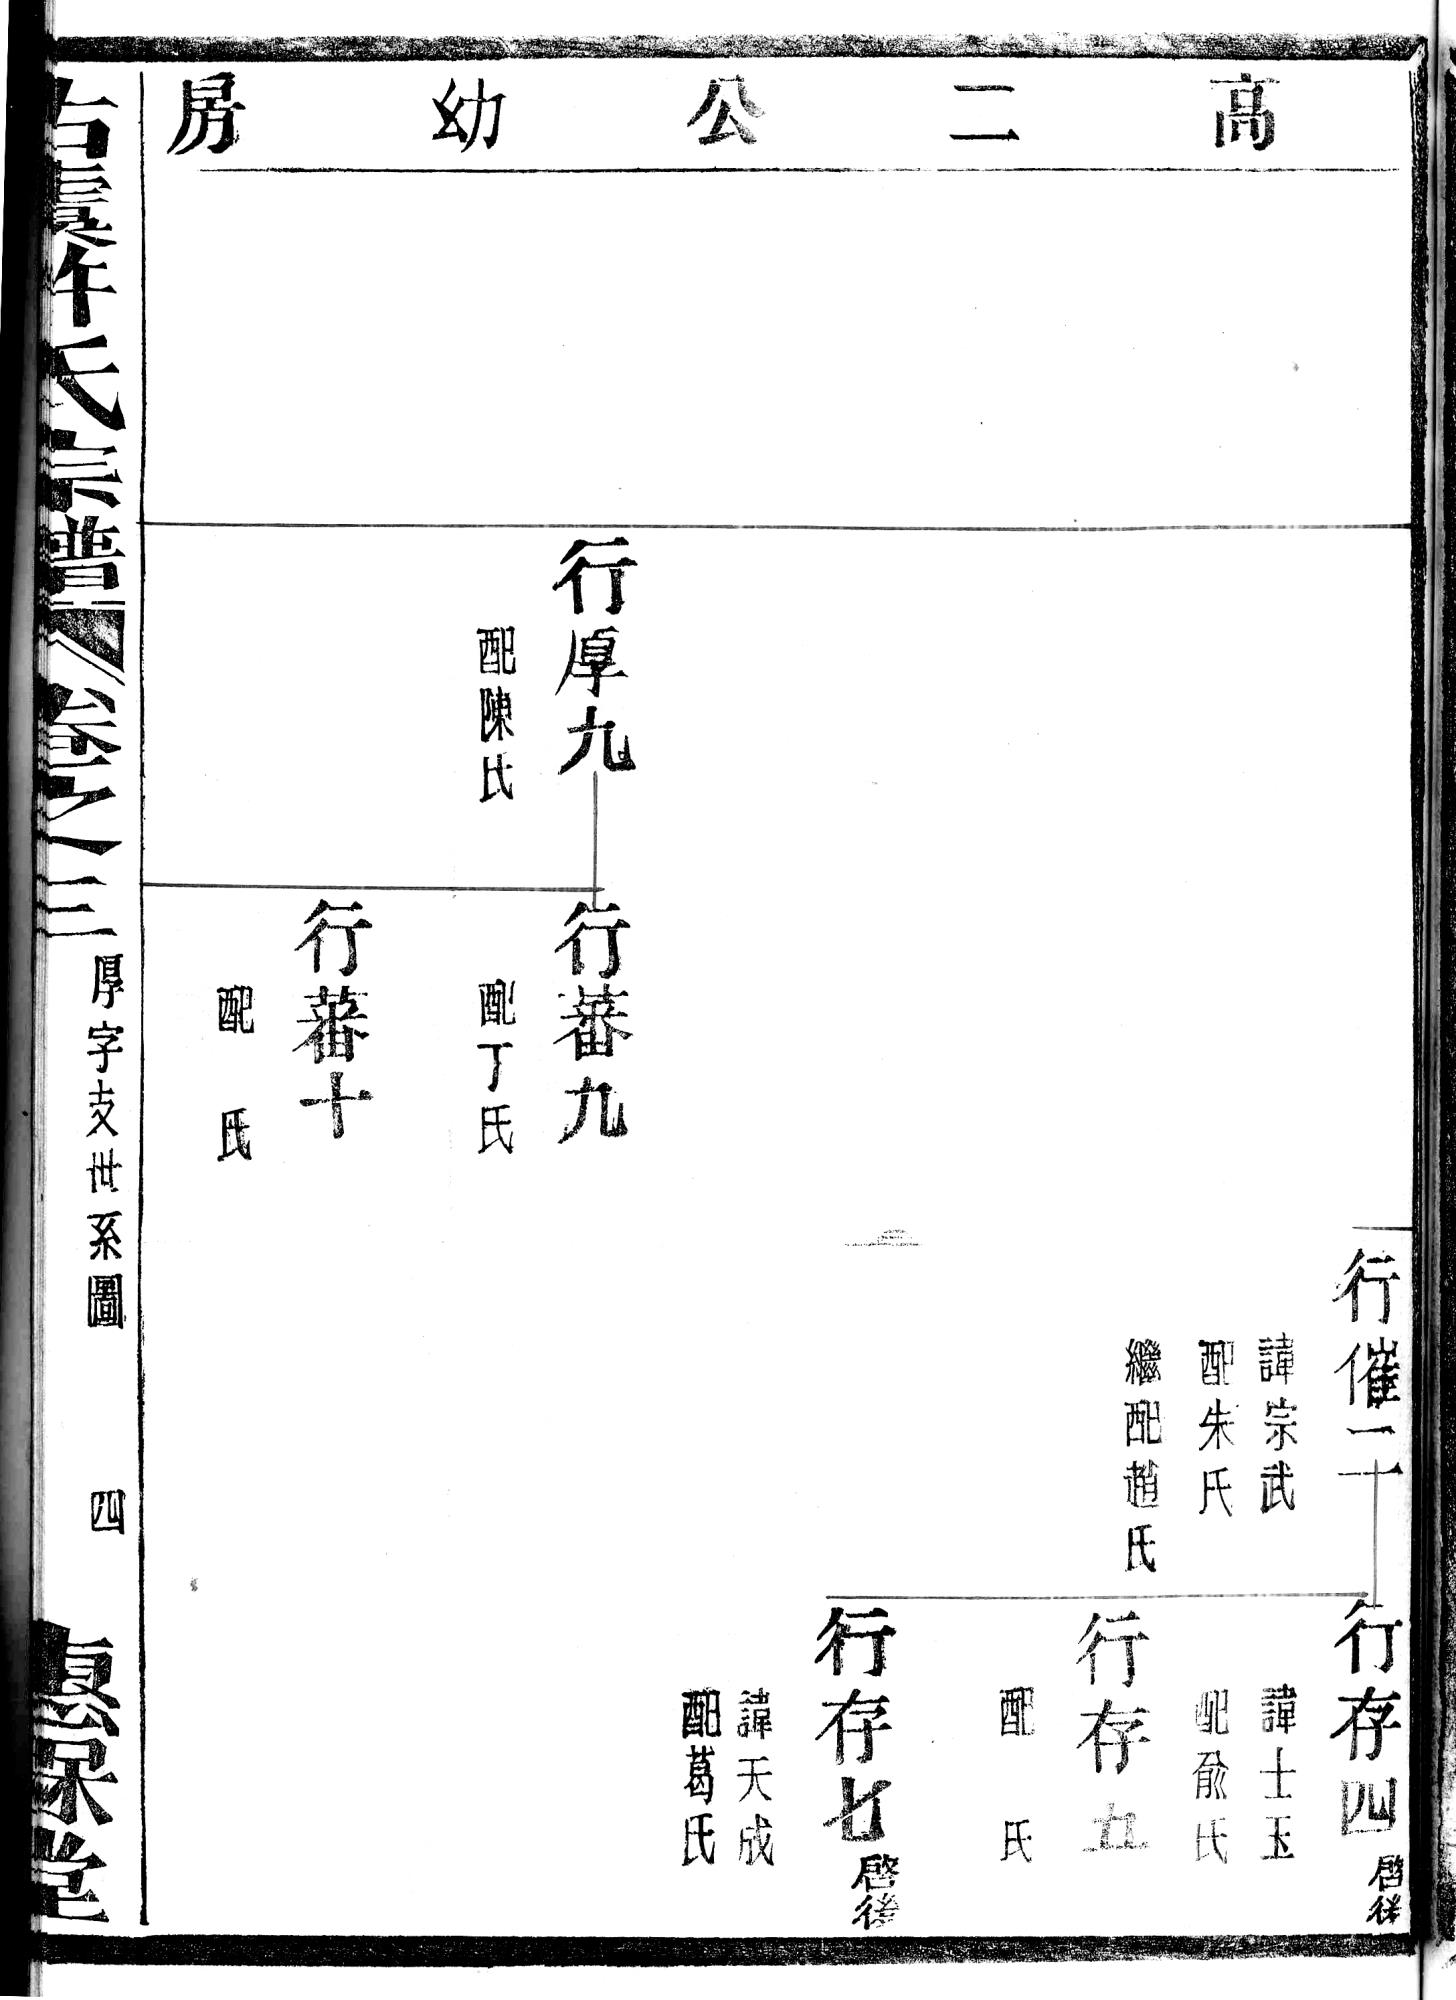 高二公幼房
行催二十
諱宗武
配朱氏
繼配趙氏
行存四
啓後
諱士玉
配俞氏
行存五
配 氏
行存七
啓後
諱天成
配葛氏
行厚九
配陳氏
行蕃九
配丁氏
行蕃十
配 氏
古虞許氏宗譜 卷之三
厚字支世系圖
四
惠保堂